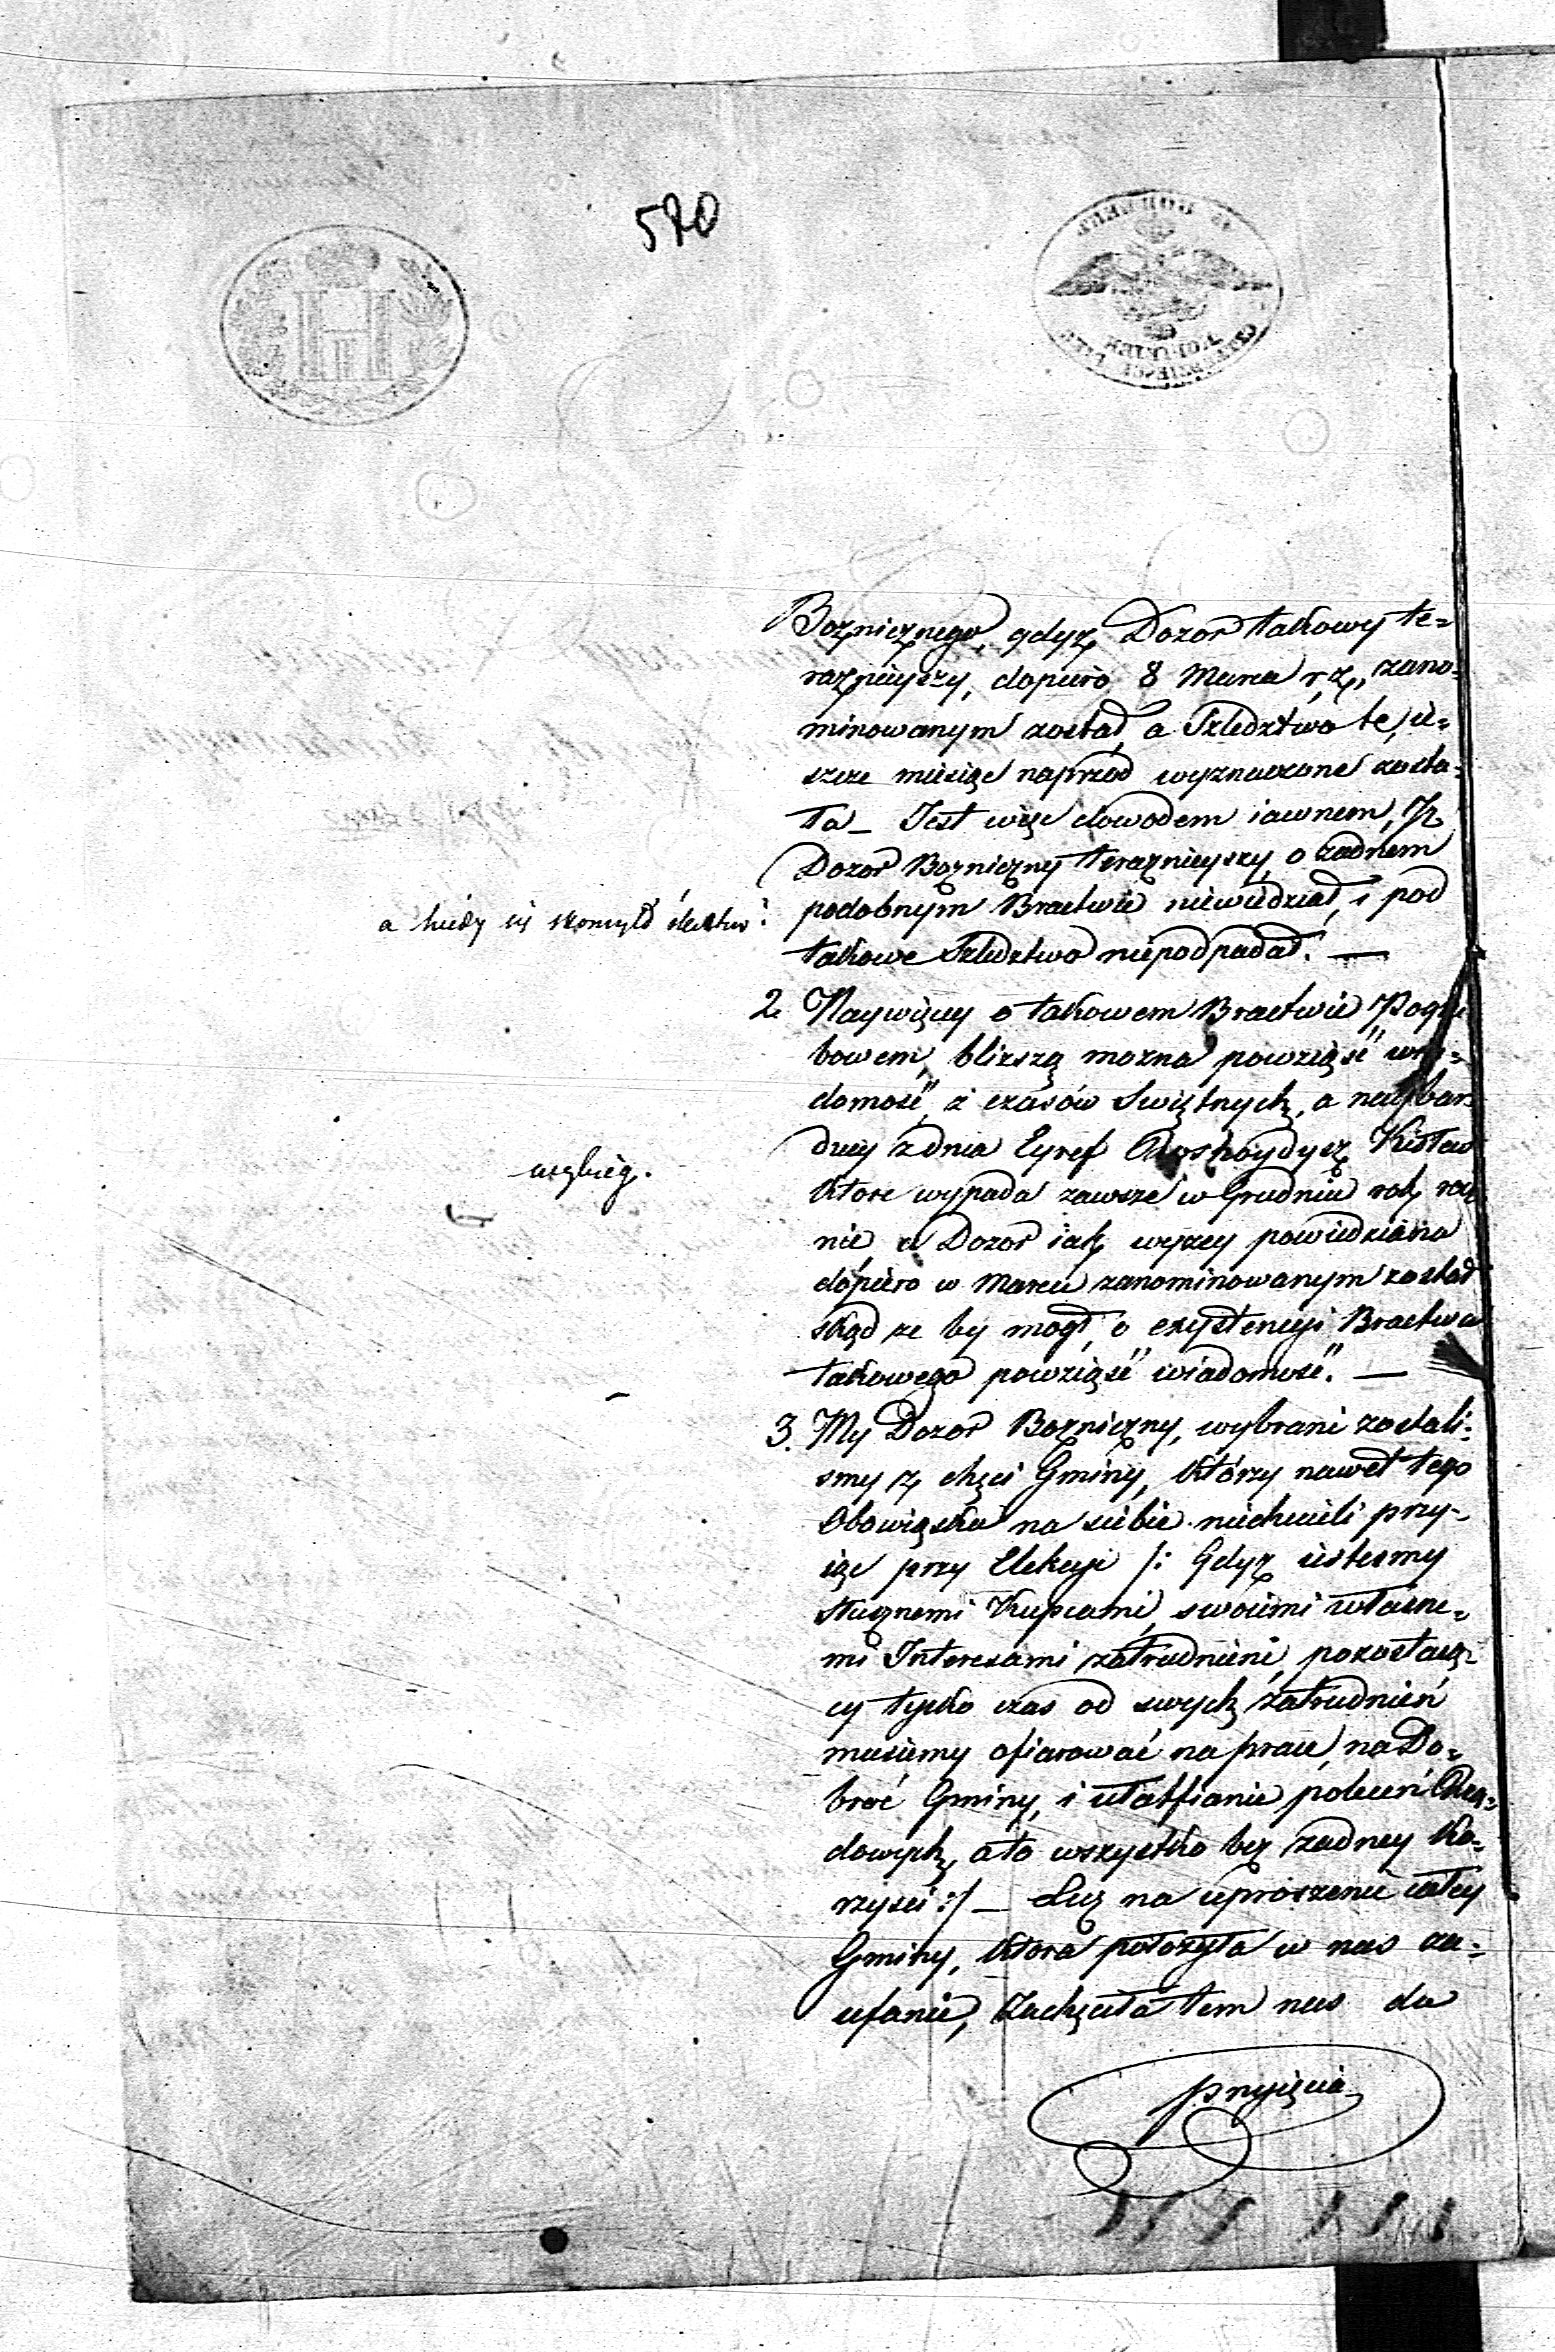 570
Bożnicznego, gdyż Dozor takowy te=
raznieyszy, dopiero 8 Marca r, z,, zano=
minowanym został, a Szledztwo te, ie=
szcze miesiąc naprzód wyznaczone zosta=
ła_ Jest więc dowodem iawnem, Iz
Dozor Bożniczny teraznieyszy, o żadnem
podobnym Bractwie niewiedział, i pod
takowe Szledztwo niepodpadał. —
a kiedy się skończyło
2. Naywięcy o takowem Bractwie Pogrze
bowem, bliższą mozna powziąść wia=
domość, z czasów Swiętnych, a naybar=
dziey z dnia Eyref Kislew
ktore wypada zawsze w Grudniu rok rocz
nie, a Dozor iak wyzey powiedziano
dopiero w Marcu zanominowanym został
skąd ze by mogł, o exystencyi Bractwa
takowego powziąść wiadomość. —
3. My Dozor Bożniczny, wybrani zostali=
smy z chęci Gminy, którzy nawet tego
Obowiązku na siebie niechcieli przy=
iąc przy Elekcyi /: Gdyż iestesmy
Kupcami, swoiemi własne=
mi Interesami zatrudnieni, pozostaią=
cy tylko czas od swych zatrudnień
musiemy ofiarować na prace, na Do=
broć Gminy, i ułatfianie poleceń Rzą=
dowych, a to wszystko bez żadney Ko=
rzysci :/ — Lecz na uproszenie całey
Gminy, ktora położyła w nas za=
ufanie, Zachęciła tem nas do
przyięcia